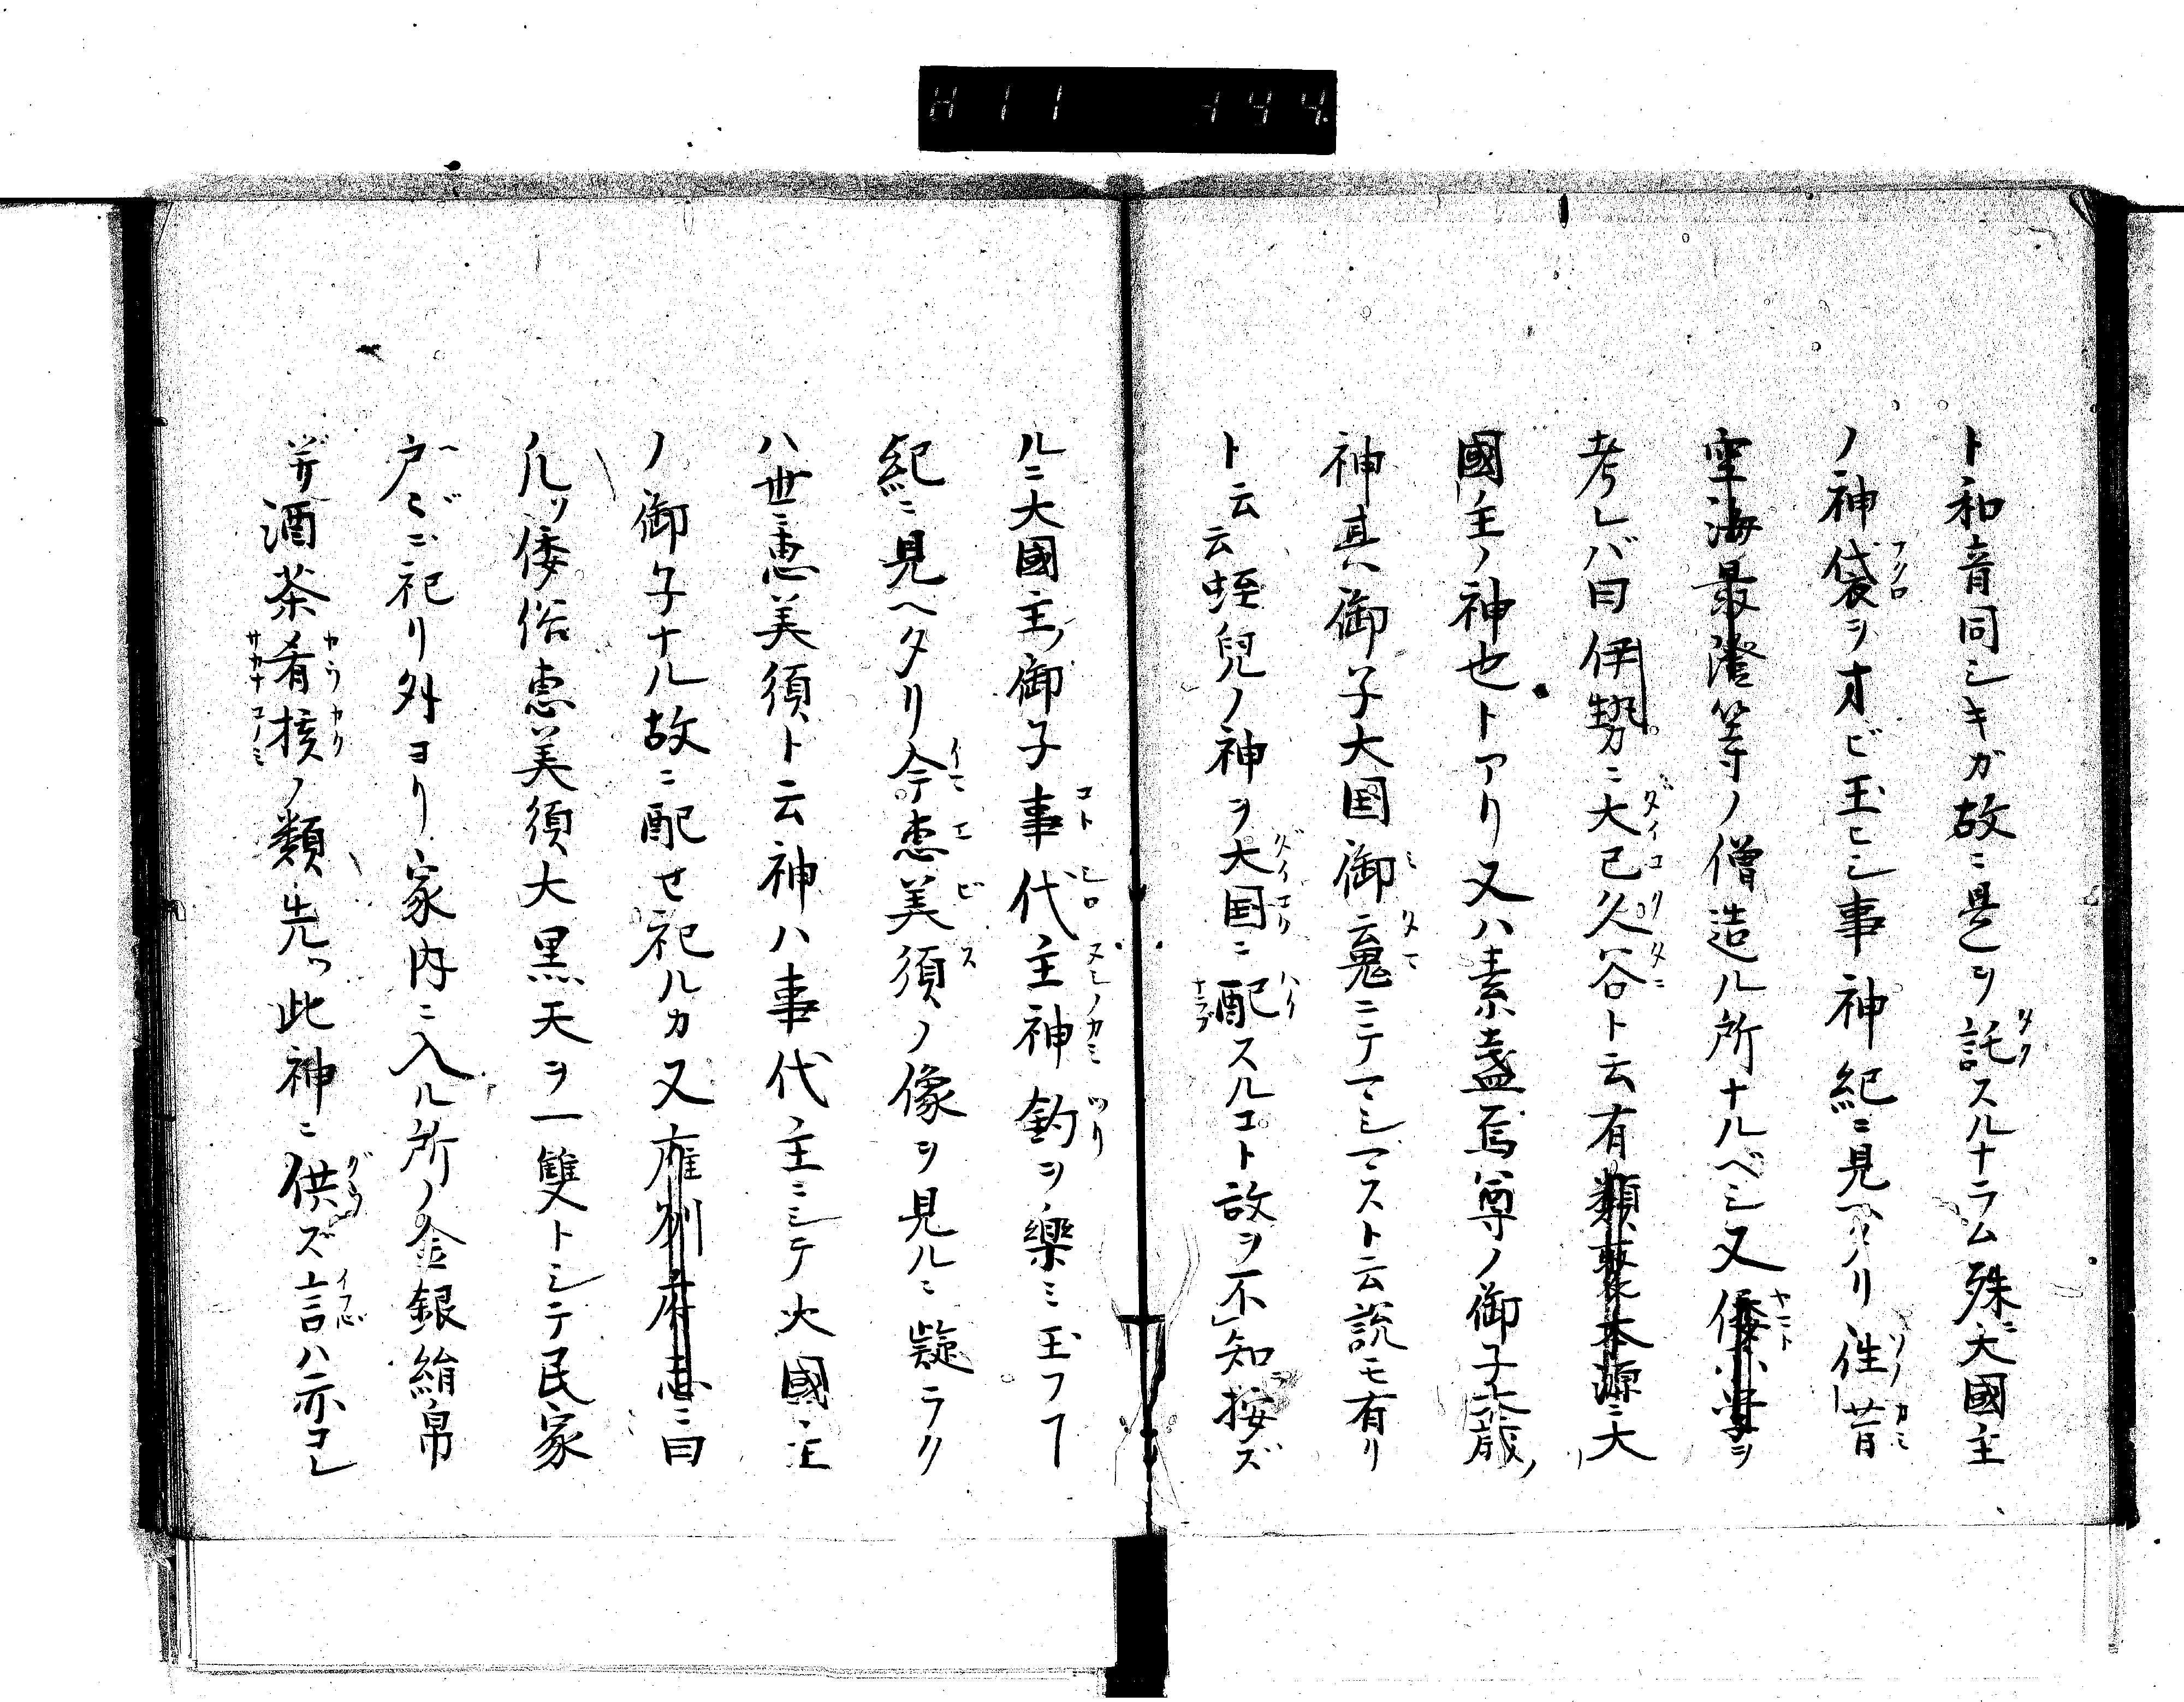 H11 144.
ト和音同シキガ故ニ是ヲ託スルナラム殊ニ大國主
ノ神袋ヲオビ玉ヒシ事神紀ニ見ヘタリ往昔
空海最澄等ノ僧造ル所ナルベシ又倭学ヲ
考レバ曰伊勢ニ大已久谷ト云有類聚本源ニ大
國主ノ神也トアリ又ハ素盞烏尊ノ御子大歳ノ
神其ノ御子大国御魂ニテマシマスト云説モ有リ
ト云云蛭兒ノ神ヲ大国ニ配スルコト故ヲ不知按ズ
ルニ大國主ノ御子事代主神釣ヲ樂ミ玉フヿ
紀ニ見ヘタリ今恵美須ノ像ヲ見ルニ疑ラク
ハ世ニ恵美須ト云神ハ事代主ニシテ大國主
ノ御子ナル故ニ配セ祀ルカ又雍州府志ニ曰
凡ソ倭俗恵美須大黒天ヲ一雙トシテ民家
戸〻ニ祀リ外ヨリ家内ニ入ル所ノ金銀絹帛
并酒茶肴核ノ類先ツ此神ニ供ズ言ハ示コレ